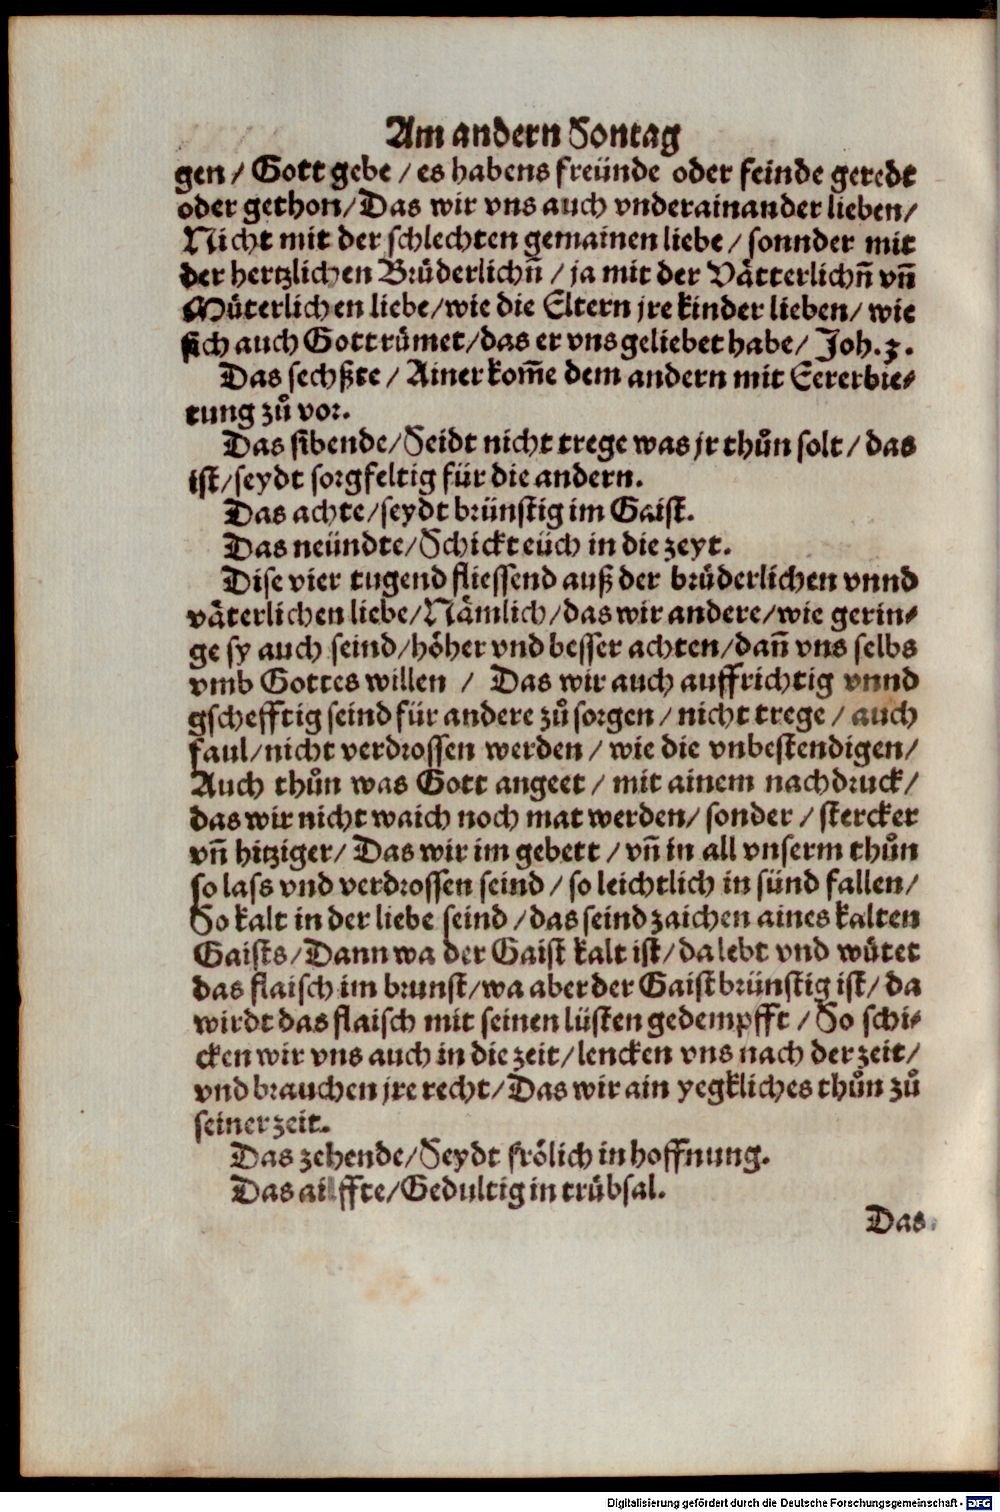 Am andern Sontag
gen / Gott gebe / es habens freünde oder feinde geredt
oder gethon/Das wir vns auch vnderainander lieben/
Nicht mit der schlechten gemainen liebe / sonnder mit
der hertzlichen Brüderlichñ / ja mit der Vätterlichñ vñ
Müterlichen liebe/wie die Eltern jre kinder lieben/ wie
sich auch Gott rümet/das er vns geliebet habe/ Joh.3.
Das sechßte / Ainer kom̄e dem andern mit Eererbie-
tung zů vor.
Das sibende/Seidt nicht trege was jr thůn solt / das
ist/seydt sorgfeltig für die andern.
Das achte/seydt brünstig im Gaist.
Das neündte/Schickt eüch in die zeyt.
Dise vier tugend fliessend auß der brüderlichen vnnd
väterlichen liebe/Nämlich/das wir andere/wie gerin-
ge sy auch seind/höher vnd besser achten/dañ vns selbs
vmb Gottes willen / Das wir auch auffrichtig vnnd
gschefftig seind für andere zů sorgen / nicht trege / auch
faul/nicht verdrossen werden / wie die vnbestendigen/
Auch thůn was Gott angeet / mit ainem nachdruck/
das wir nicht waich noch mat werden/ sonder / stercker
vñ hitziger/ Das wir im gebett / vñ in all vnserm thůn
so lass vnd verdrossen seind / so leichtlich in sünd fallen/
So kalt in der liebe seind /das seind zaichen aines kalten
Gaists/Dann wa der Gaist kalt ist/da lebt vnd wütet
das flaisch im brunst/wa aber der Gaist brünstig ist/ da
wirdt das flaisch mit seinen lüsten gedempfft / So schi-
cken wir vns auch in die zeit/lencken vns nach der zeit/
vnd brauchen jre recht/Das wir ain yegkliches thůn zů
seiner zeit.
Das zehende/Seydt frölich in hoffnung.
Das ailffte/Gedultig in trübsal.
Das
Digitalisierung gefördert durch die Deutsche Forschungsgemeinschaft - DFG